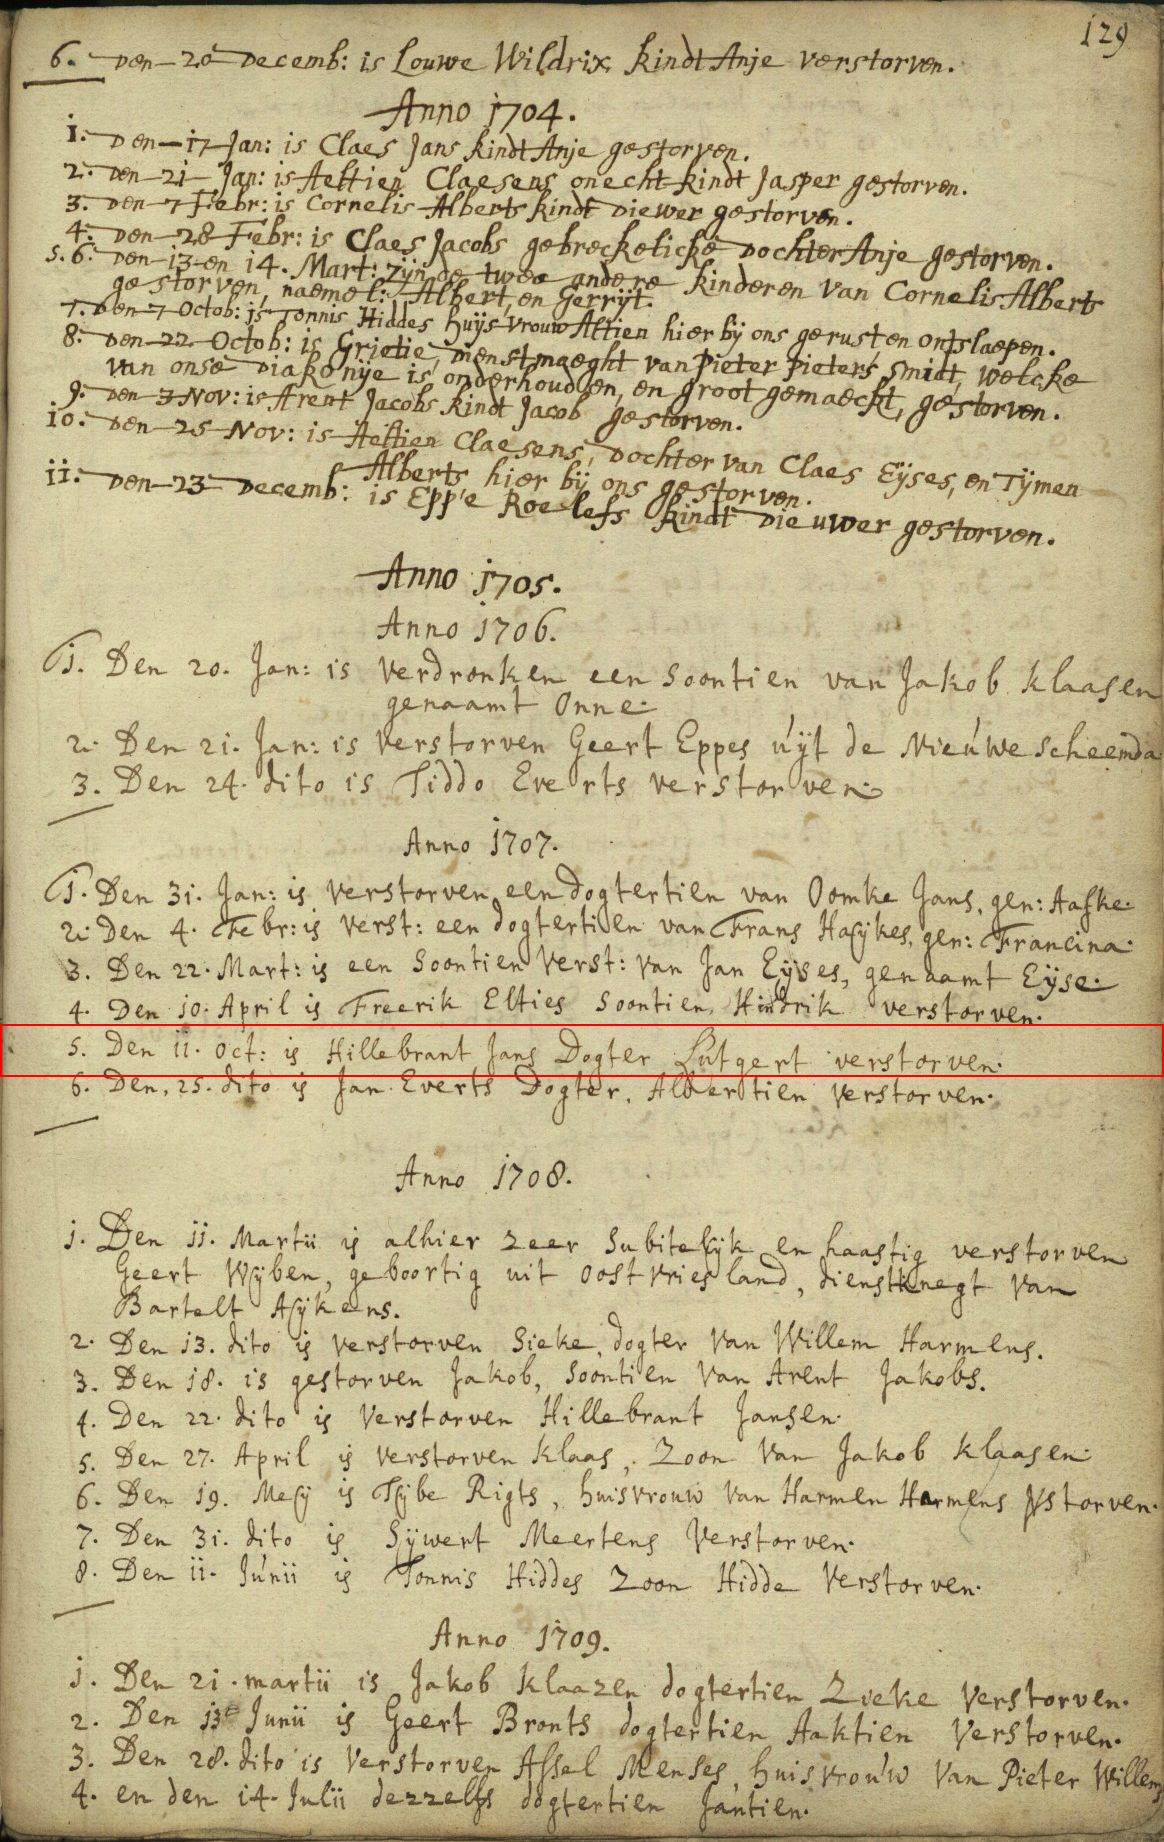 129
6. Den 20 Decemb: is Louwe Wildrix kindt Anje verstorven.
Anno 1704.
1. Den 17 Jan: is Claes Jans kindt Anje gestorven.
2. Den 21 Jan: is Aeltien Claesens onecht kindt Jasper gestorven.
3. Den 7 Febr: is Cornelis Alberts kindt Diewer gestorven.
4. Den 28 Febr: is Claes Jacobs gebreckelicke Dochter Anje gestorven.
5.6. Den 13 en 14. Mart: zijn de twee andere kinderen van Cornelis Alberts
gestorven, naemel: Albert, en Gerrijt.
7. Den 7 Octob: is Tonnis Hiddes huijsvrouw Altien hier bij ons gerust en ontslaepen.
8. Den 22 Octob: is Grietie, Dienstmaeght van Pieter Pieters Smidt, welcke
van onse Diakenije is onderhouden, en groot gemaeckt, gestorven.
9. Den 3 Nov: is Arent Jacobs kindt Jacob gestorven.
10. Den 25 Nov: is Aeltien Claesens, Dochter van Claes Eijses, en Tijmen
Alberts hier bij ons gestorven.
11. Den 23 Decemb: is Eppe Roelefs kindt Dieuwer gestorven.
Anno 1705.
Anno 1706.
1. Den 20. Jan: is verdronken een Soontien van Jakob Klaasen
genaamt Onne.
2. Den 21. Jan: is verstorven Geert Eppes uijt de Nieuwe Scheemda
3. Den 24. dito is Tiddo Everts verstorven.
Anno 1707.
1. Den 31. Jan: is verstorven een dogtertien van Oomke Jans, gen: Aafke.
2. Den 4. Febr: is verst: een dogtertien van Frans Haijkes, gen: Francina.
3. Den 22. Mart: is een Soontien verst: van Jan Eijses, genaamt Eijse.
4. Den 10. April is Freerik Elties Soontien, Hindrik verstorven.
5. Den 11. Oct: is Hillebrant Jans Dogter Lutgert verstorven.
6. Den, 25. dito is Jan Everts Dogter, Albertien verstorven.
Anno 1708.
1. Den 11. Martii is alhier zeer Subitelijk en haastig verstorven
Geert Wijben, geboortig uit Oostvriesland, dienstknegt van
Bartelt Aijkens.
2. Den 13. dito is verstorven Sieke, dogter van Willem Harmens.
3. Den 18. is gestorven Jakob, Soontien van Arent Jakobs.
4. Den 22. dito is verstorven Hillebrant Jansen.
5. Den 27. April is verstorven Klaas, Zoon van Jakob Klaasen.
6. Den 19. Meij is Tijbe Rigts, huisvrouw van Harmen Harmens vstorven.
7. Den 31. dito is Sijwert Meertens verstorven.
8. Den 11. Junii is Tonnis Hiddes Zoon Hidde verstorven.
Anno 1709.
1. Den 21. martii is Jakob Klaazen dogtertien Zieke verstorven.
2. Den 13e Junii is Geert Bronts dogtertien Aaktien verstorven.
3. Den 28. dito is verstorven Assel Menses, huisvrouw van Pieter Willems
4. en den 14. Julii dezzelfs dogtertien Jantien.